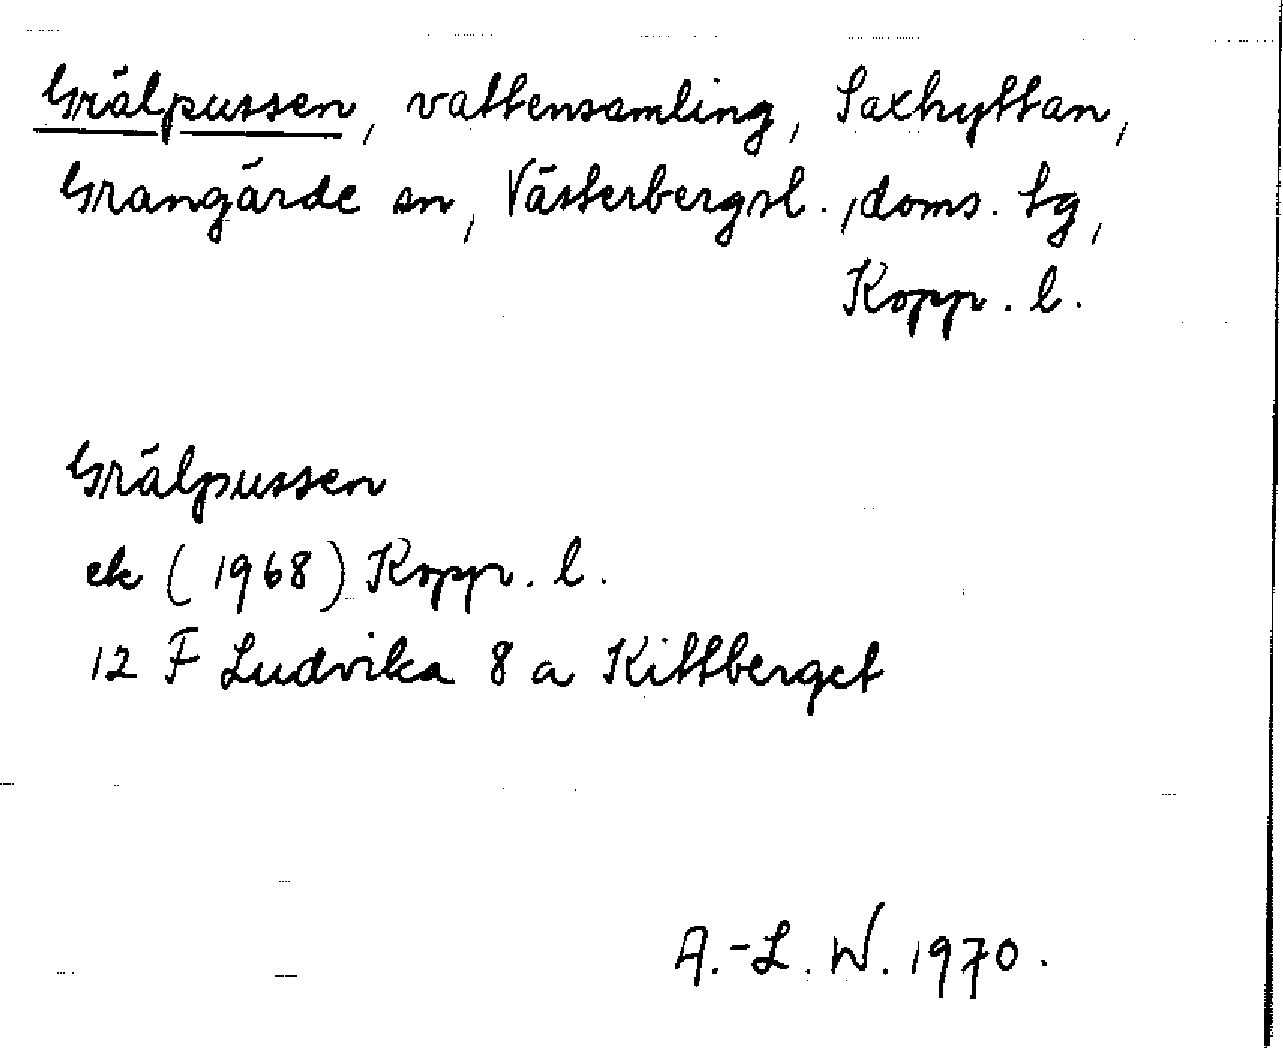 Grälpussen, vattensamling, Saxhyttan,
Grangärde sn, Västerbergsl., doms. tg,
Kopp. l.
Grälpussen
ek (1968) Kopp. l.
12 F Ludvika 8 a Kittberget
A.-L. W. 1970.